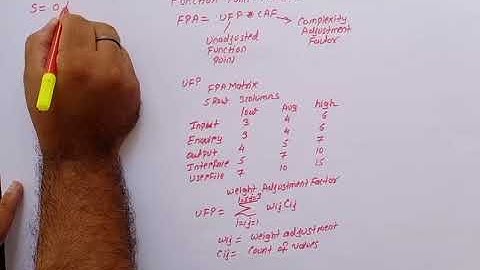 S = 0
Function Point
FPA = UFP * CAF → Complexity Adjustment Factor
Unadjusted
Function
Point
UFP
FPA Matrix
5 Row 3 columns
low Avg high
Input 3 4 6
Enquiry 3 4 6
output 4 5 7
Interface 5 7 10
UserFile 7 10 15
Weight Adjustment Factor
UFP = Σ Wij Cij
i=1 j=1
Wij = Weight adjustment
Cij = Count of values